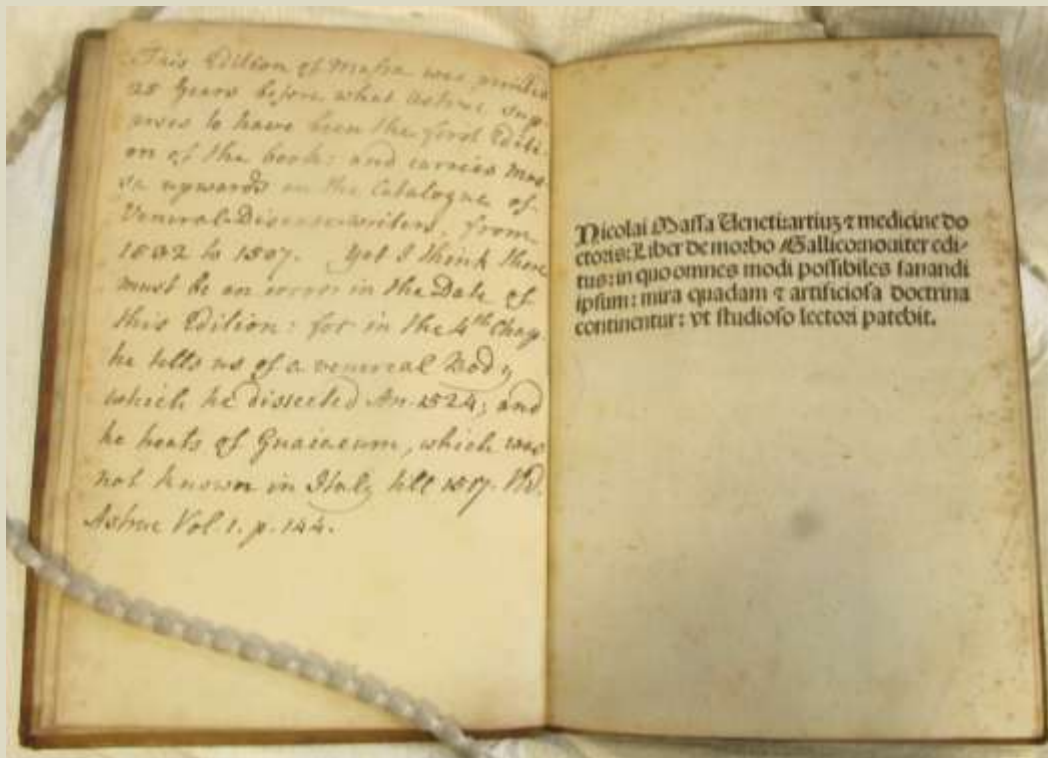 This Edition of Massa was printed
25 Years before what Astruc sup-
poses to have been the first Editi-
on of the book: and carries Mas-
sa upwards on the Catalogue of
Venereal-Disease-writers, from
1532 to 1507. Yet I think there
must be an error in the Date of
this Edition: for in the 4th Chap.
he tells us of a venereal Body
which he dissected An. 1524; and
he treats of Guaiacum, which was
not known in Italy till 1517. Vid.
Astruc Vol. 1. p. 144.
Nicolai Massa Veneti: artiuz ⁊ medicine do
ctoris: Liber de morbo Gallico: nouiter edi-
tus: in quo omnes modi possibiles sanandi
ipsum: mira quadam ⁊ artificiosa doctrina
continentur: vt studioso lectori patebit.